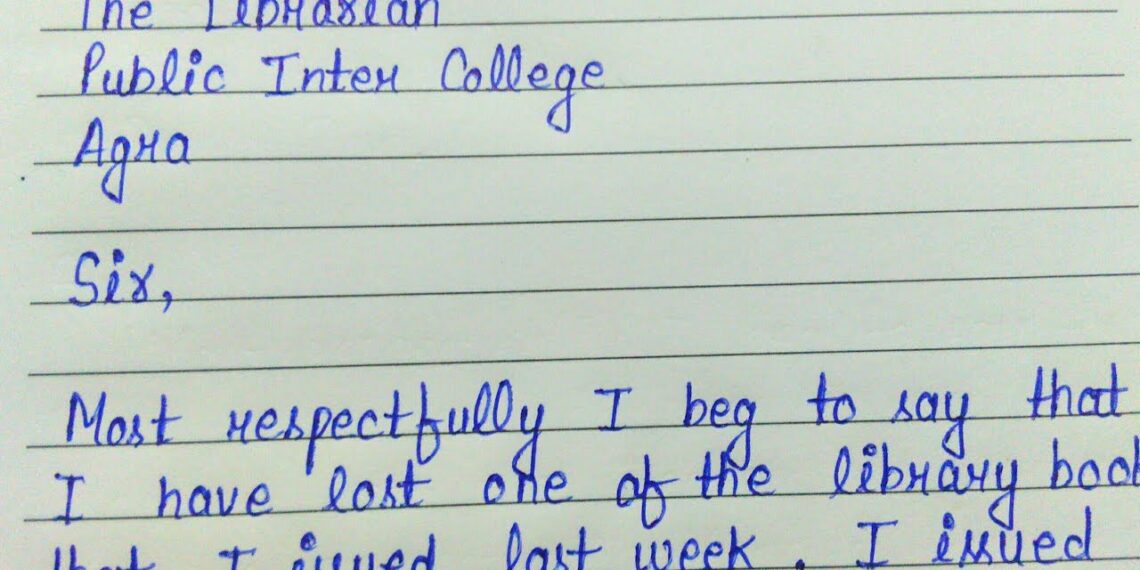 The Librarian
Public Inter College
Agra
Sir,
Most respectfully I beg to say that
I have lost one of the library boo
that I issued last week. I issued